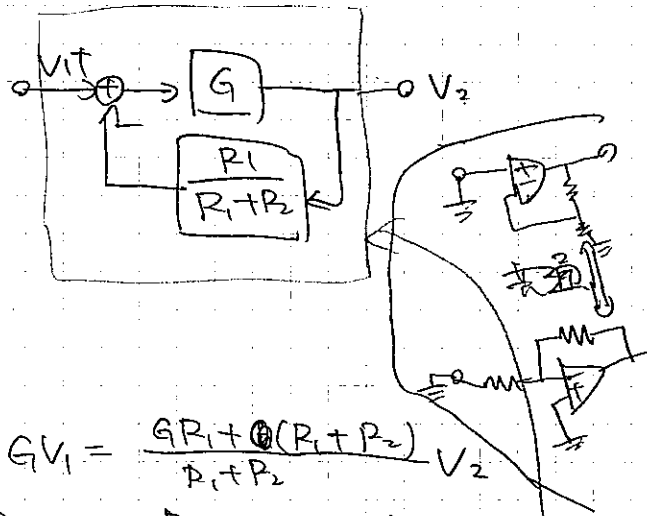 V1 + + G V2
R1
R1+R2
+
-
GV1 = GR1+(R1+R2) V2
R1+R2